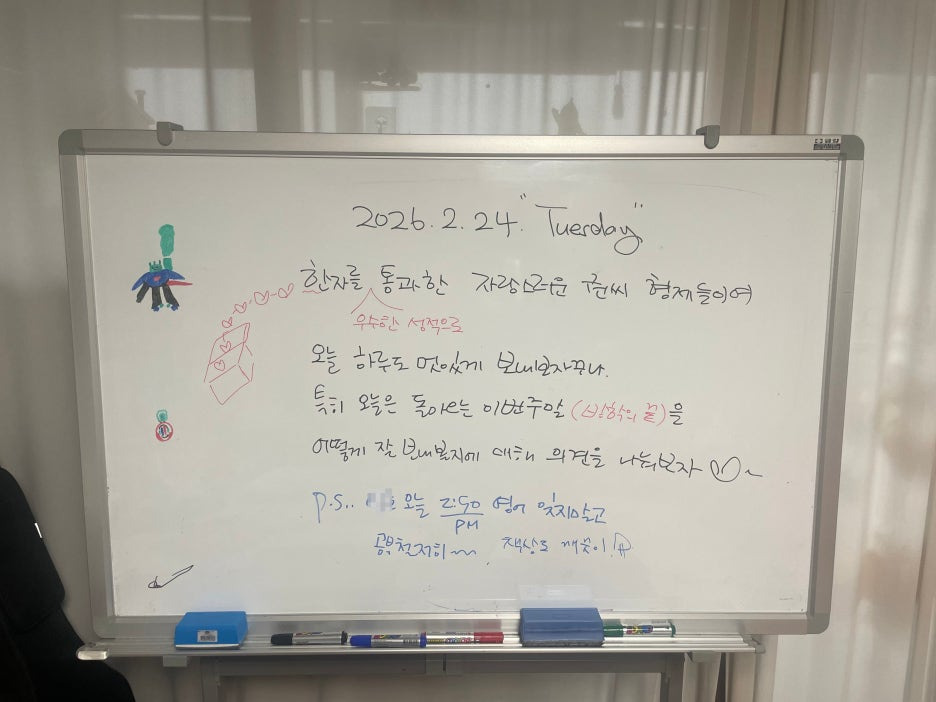 2026. 2. 24. "Tuesday"
한자를 통과한 자랑스러운 형제들이여
우수한 성적으로
오늘 하루도 멋있게 보내보자꾸나.
특히 오늘은 돌아오는 이번주말 (방학의 끝)을
어떻게 잘 보내볼지에 대해 의견을 나눠보자
P.S.. 오늘 2:50 영어 잊지말고
PM
공부 철저히~ 책상도 깨끗이